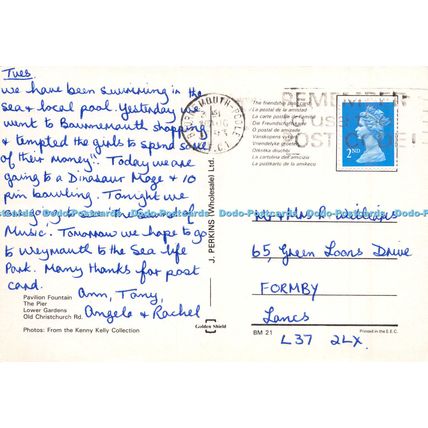 Tues.
We have been swimming in the
sea & local pool. Yesterday we
went to Bournemouth shopping
& tempted the girls to spend some
of their money!! Today we are
going to a Dinosaur Maze & 10
pin bowling. Tonight we
are going to see the Sound of
Music. Tomorrow we hope to go
to Weymouth to the Sea Life
Park. Many thanks for post
card.
Ann, Tony,
Angela & Rachel
Pavilion Fountain
The Pier
Lower Gardens
Old Christchurch Rd.
Photos: From the Kenny Kelly Collection
J. PERKINS (Wholesale) Ltd.
Golden Shield
BOURNEMOUTH-POOLE
REMEMBER
USE
POSTCODE
The friendship postcard
La postal de la amistad
La carte postale de l'amitié
Die Freundschafts
O postal da amizade
Vänskapens vykort
Vriendelijke groeten
La cartolina dell'amicizia
La postikarto de la amikeco
2ND
Mr & Mrs R.
65, Green Loons Drive
FORMBY
Lancs
L37 2LX.
BM 21
Printed in the E.E.C.
Dodo-Postcards Dodo-Postcards Dodo-Postcards Dodo-Postcards Dodo-Postcards